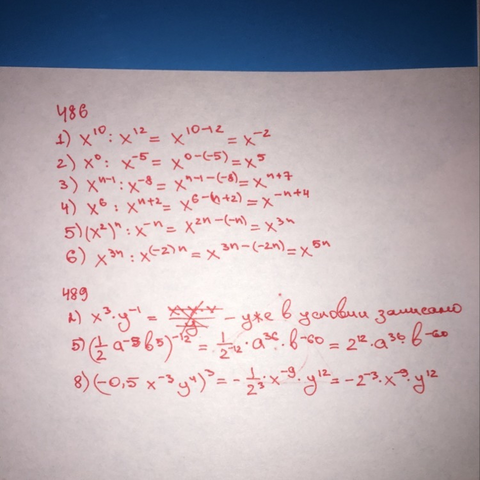 486
1) x¹⁰ : x¹² = x¹⁰⁻¹² = x⁻²
2) x⁰ : x⁻⁵ = x⁰⁻⁽⁻⁵⁾ = x⁵
3) xⁿ⁻¹ : x⁻⁸ = xⁿ⁻¹⁻⁽⁻⁸⁾ = xⁿ⁺⁷
4) x⁶ : xⁿ⁺² = x⁶⁻⁽ⁿ⁺²⁾ = x⁻ⁿ⁺⁴
5) (x²)ⁿ : x⁻ⁿ = x²ⁿ⁻⁽⁻ⁿ⁾ = x³ⁿ
6) x³ⁿ : x⁽⁻²⁾ⁿ = x³ⁿ⁻⁽⁻²ⁿ⁾ = x⁵ⁿ
489
2) x³ · y⁻¹ = – уже в условии записано
5) (1/2 a⁻³ b⁵)⁻¹² = 1/2⁻¹² · a³⁶ · b⁻⁶⁰ = 2¹² · a³⁶ b⁻⁶⁰
8) (-0,5 x⁻³ y⁴)³ = - 1/2³ · x⁻⁹ · y¹² = -2⁻³ · x⁻⁹ · y¹²